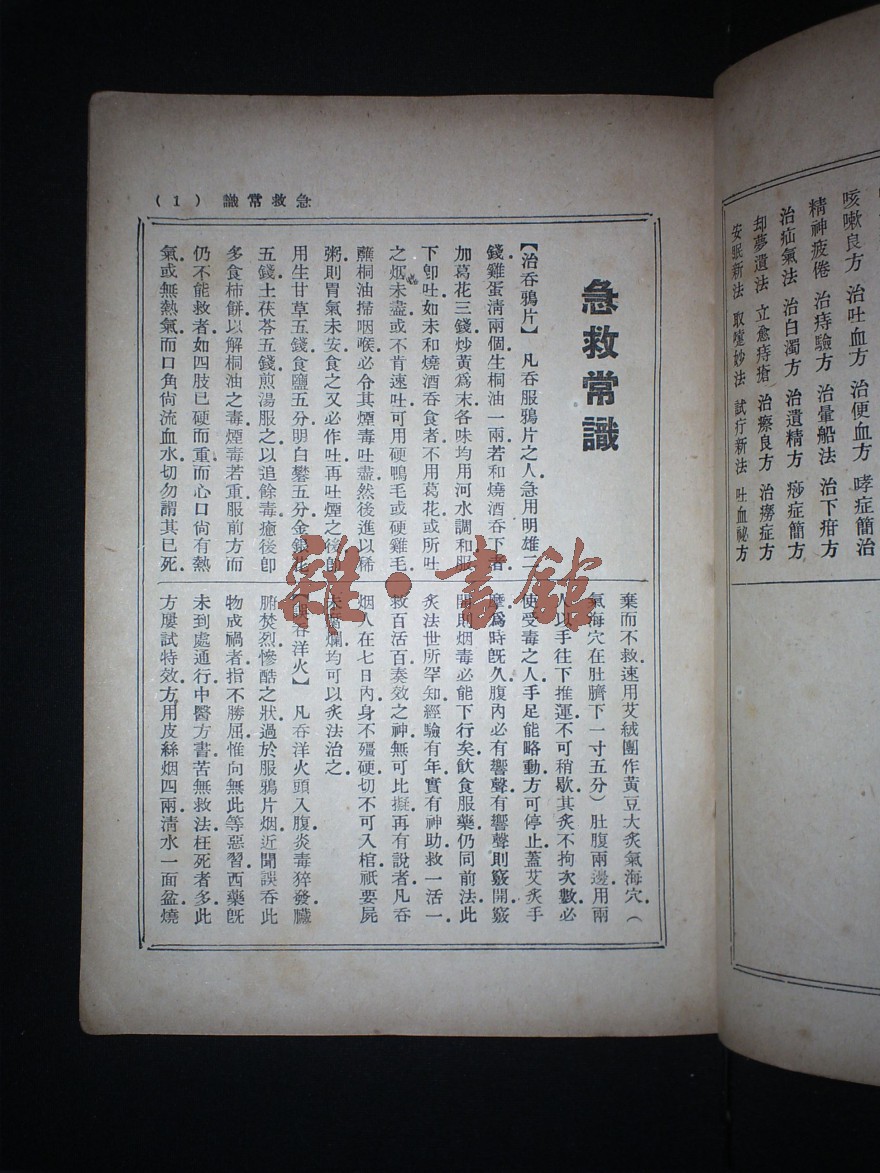 咳嗽良方 治吐血方 治便血方 哮症簡治
精神疲倦 治痔驗方 治暈船法 治下疳方
治疝氣法 治白濁方 治遺精方 痧症簡方
却夢遺法 立愈痔瘡 治瘵良方 治癆症方
安眠新法 取嚏妙法 試疔新法 吐血祕方
急救常識 (1)
急救常識
【治吞鴉片】 凡吞服鴉片之人急用明雄二
錢雞蛋淸兩個生桐油一兩若和燒酒吞下者
加葛花三錢炒黃爲末各味均用河水調和服
下卽吐如未和燒酒吞食者不用葛花或所吐
之烟未盡或不肯速吐可用硬鴨毛或硬雞毛
蘸桐油掃咽喉必令其煙毒吐盡然後進以稀
粥則胃氣未安食之又必作吐再吐煙之後卽
用生甘草五錢食鹽五分明白礬五分金銀花
五錢土茯苓五錢煎湯服之以追餘毒癒後卽
多食柿餅以解桐油之毒煙毒若重服前方而
仍不能救者如四肢已硬而重而心口尙有熱
氣或無熱氣而口角尙流血水切勿謂其已死
棄而不救速用艾絨團作黃豆大炙氣海穴(
氣海穴在肚臍下一寸五分)肚腹兩邊用兩
人以手往下推運不可稍歇其炙不拘次數必
使受毒之人手足能略動方可停止蓋艾炙手
摩爲時旣久腹內必有響聲有響聲則竅開竅
開則烟毒必能下行矣飲食服藥仍同前法此
炙法世所罕知經驗有年實有神助救一活一
救百活百奏效之神無可比擬再有說者凡吞
烟人在七日內身不殭硬切不可入棺祇要屍
未腐爛均可以炙法治之
【誤吞洋火】 凡吞洋火頭入腹炎毒猝發臟
腑焚烈慘酷之狀過於服鴉片烟近聞誤吞此
物成禍者指不勝屈惟向無此等惡習西藥旣
未到處通行中醫方書苦無救法枉死者多此
方屢試特效方用皮絲烟四兩淸水一面盆燒
雜·書館